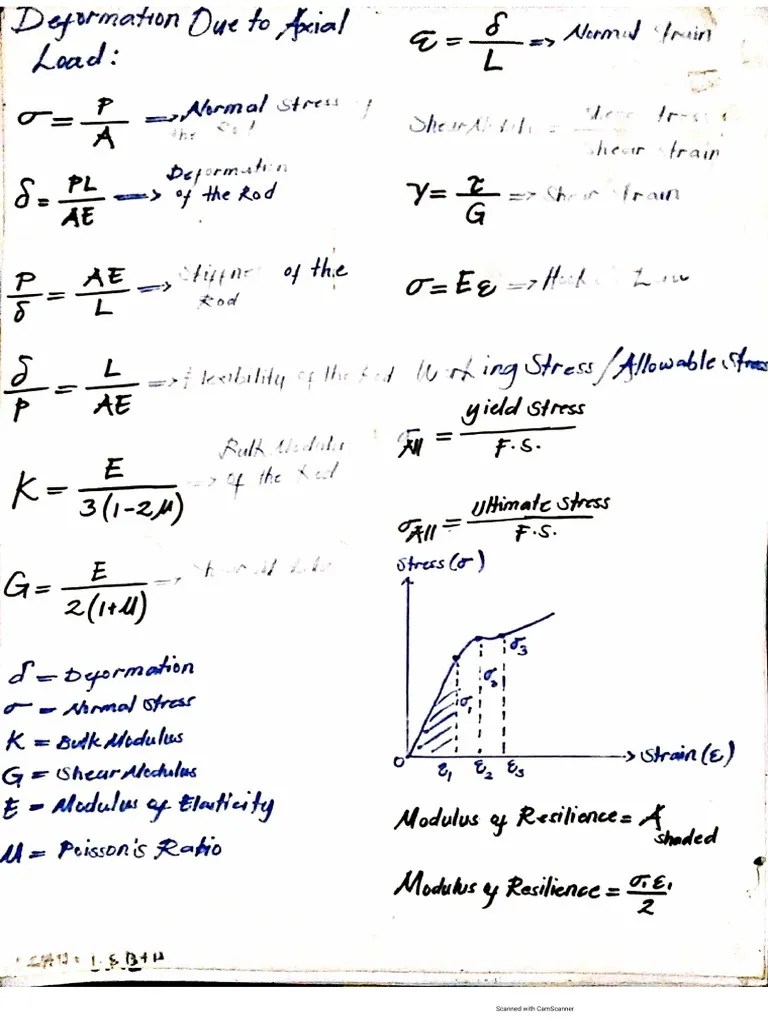 Deformation Due to Axial
Load:
σ = P/A => Normal Stress of
the Rod
δ = PL/AE => Deformation
of the Rod
P/δ = AE/L => Stiffness of the
Rod
δ/P = L/AE => Flexibility of the Rod
K = E/3(1-2μ) => Bulk Modulus
of the Rod
G = E/2(1+μ) => Shear Modulus
δ = Deformation
σ = Normal Stress
K = Bulk Modulus
G = Shear Modulus
E = Modulus of Elasticity
μ = Poisson's Ratio
ε = δ/L => Normal Strain
Shear Modulus = Shear Stress/Shear Strain
γ = τ/G => Shear Strain
σ = Eε => Hooke's Law
Working Stress/Allowable Stress
σAll = yield Stress/F.S.
σAll = Ultimate Stress/F.S.
Stress(σ)
σ3
σ2
σ1
O
ε1 ε2 ε3
Strain(ε)
Modulus of Resilience = A shaded
Modulus of Resilience = σ1ε1/2
Scanned with CamScanner